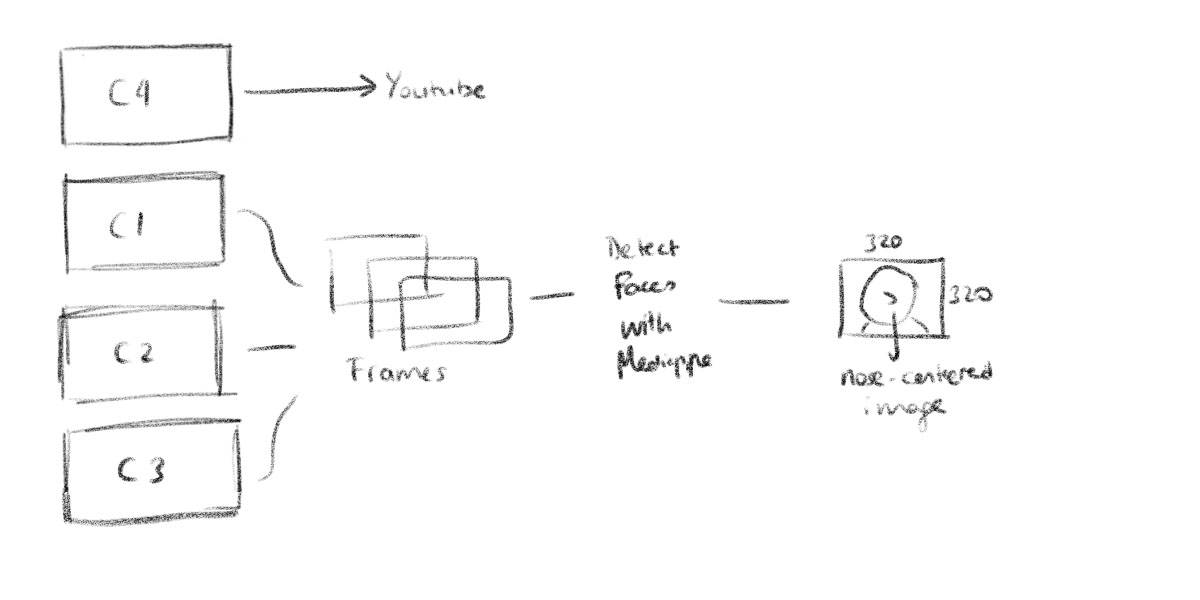 C4
Youtube
C1
C2
C3
Frames
Detect
Faces
with
Mediappe
320
320
nose-centered
image